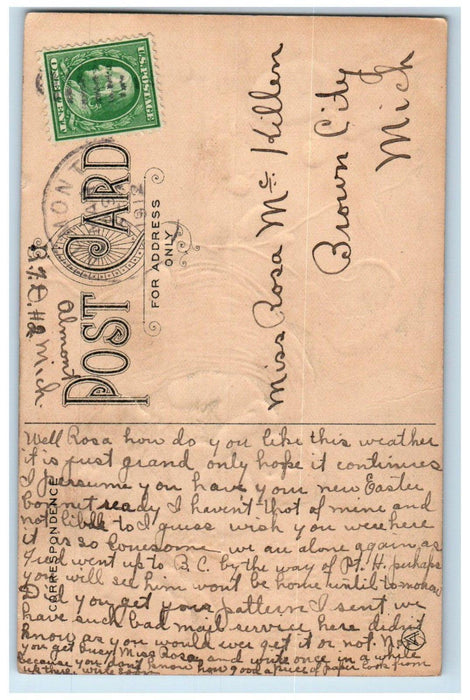 U.S. POSTAGE
ONE CENT
MONT
1912
POST CARD
FOR ADDRESS
ONLY
Miss Rosa Mc Killen
Brown City
Mich
Almont
Mich.
CORRESPONDENCE
Well Rosa how do you like this weather
it is just grand only hope it continues
I persume you have your new Easter
bonnet ready I haven't that of mine and
not liable to I guess wish you were here
it is so lonesome we are alone again as
Fred went up to B.C. by the way of Pt. H. perhaps
you will see him won't be home until tomorrow
Did you get your pattern I sent, we
have such bad mail service here didn't
know as you would ever get it or not. Now
you get busy Miss Rosa, and write once in a while
because you don't know how good a piece of paper looks from
up there, write soon